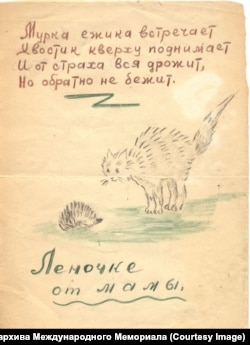 Мурка ежика встречает
Хвостик кверху поднимает
И от страха вся дрожит,
Но обратно не бежит.
Леночке
от мамы.
архива Международного Мемориала (Courtesy Image)